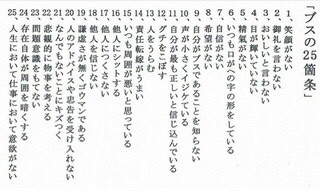 「ブスの25箇条」
1、笑顔がない
2 お礼を言わない
3 おいしいと言わない
4 目が輝いていない
5 精気がない
6 いつも口がへの字の形をしている
7 自信がない
8 希望がない
9 自分がブスであることを知らない
10 声が小さくイジケている
11 自分が最も正しいと信じ込んでいる
12 グチをこぼす
13 人をうらむ
14 責任転嫁がうまい
15 いつも周囲が悪いと思っている
16 他人にシットする
17 他人につくさない
18 他人を信じない
19 謙虚さがなくゴウマンである
20 人のアドバイスや忠告を受け入れない
21 なんでもないことにキズつく
22 悲観的に物事を考える
23 問題意識をもてない
24 存在自体が周囲を暗くする
25 人生においても仕事においても意欲がない